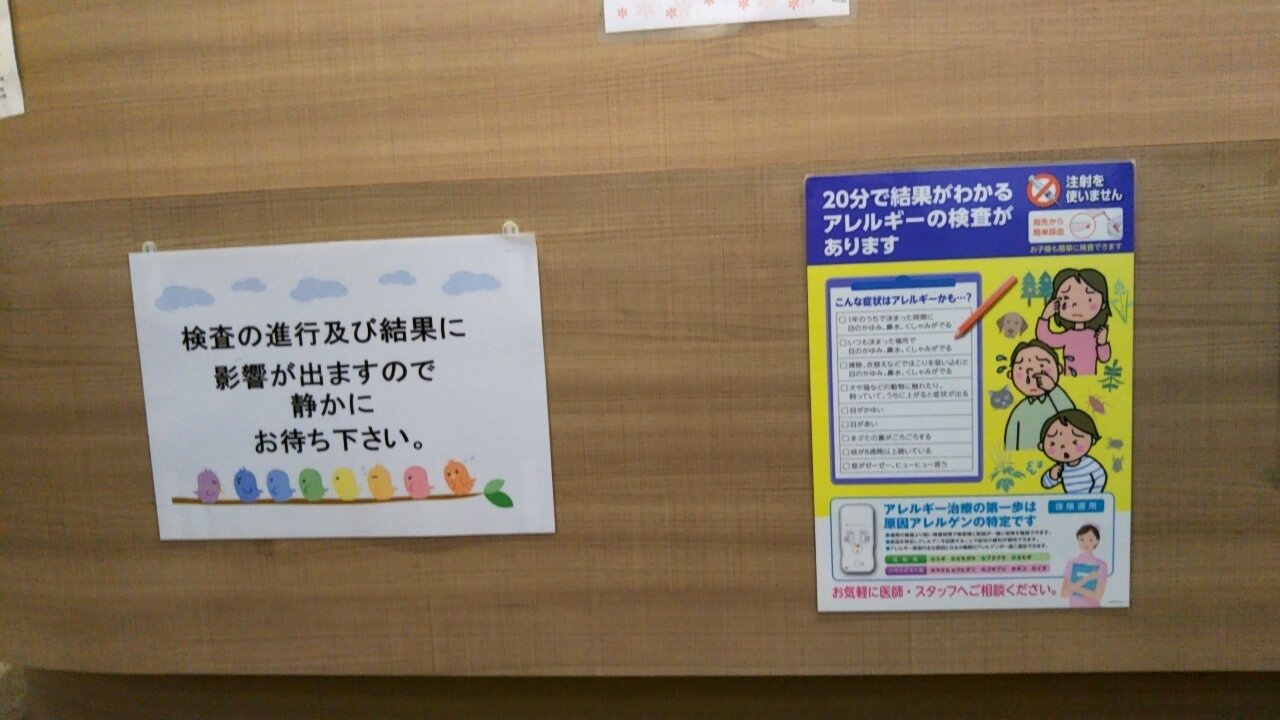 検査の進行及び結果に
影響が出ますので
静かに
お待ち下さい。
20分で結果がわかる
アレルギーの検査が
あります
注射を
使いません
指先から
簡単採血
お子様も簡単に検査できます
こんな症状はアレルギーかも…?
1年のうちで決まった時期に
目のかゆみ、鼻水、くしゃみがでる
いつも決まった場所で
目のかゆみ、鼻水、くしゃみがでる
掃除、衣替えなどでほこりを吸い込むと
目のかゆみ、鼻水、くしゃみがでる
犬や猫などの動物に触れたり、
飼っていて、うちに上がると症状が出る
目がかゆい
目が赤い
まぶたの裏がごろごろする
咳が8週間以上続いている
息がゼーゼー、ヒューヒュー言う
アレルギー治療の第一歩は
原因アレルゲンの特定です
保険適用
お気軽に医師・スタッフへご相談ください。